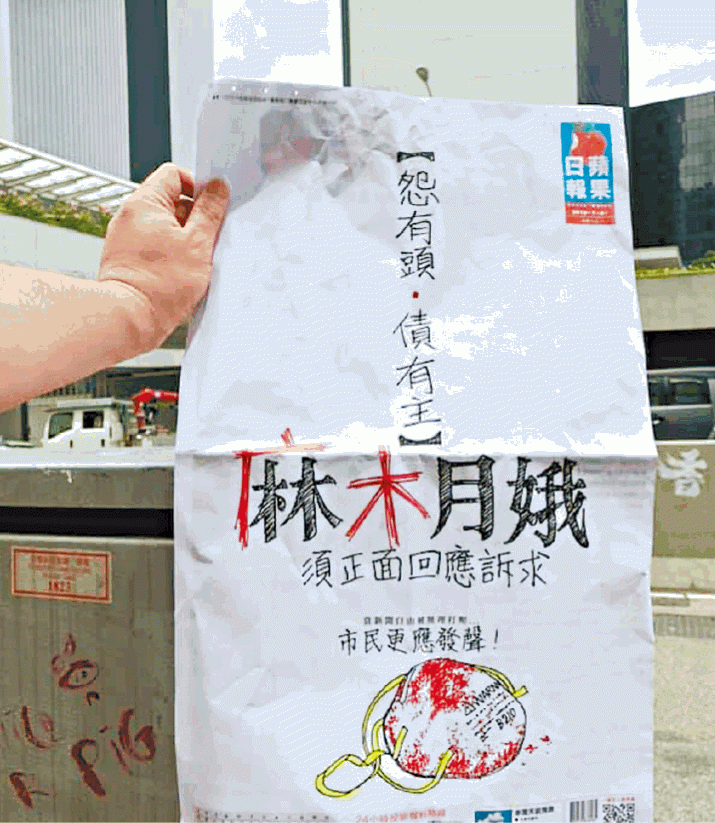 蘋果
日報
【怨有頭・債有主】
麻木月娥
須正面回應訴求
當新聞自由被無理打壓...
市民更應發聲！
WARNING
8210
24小時
1823
PiG